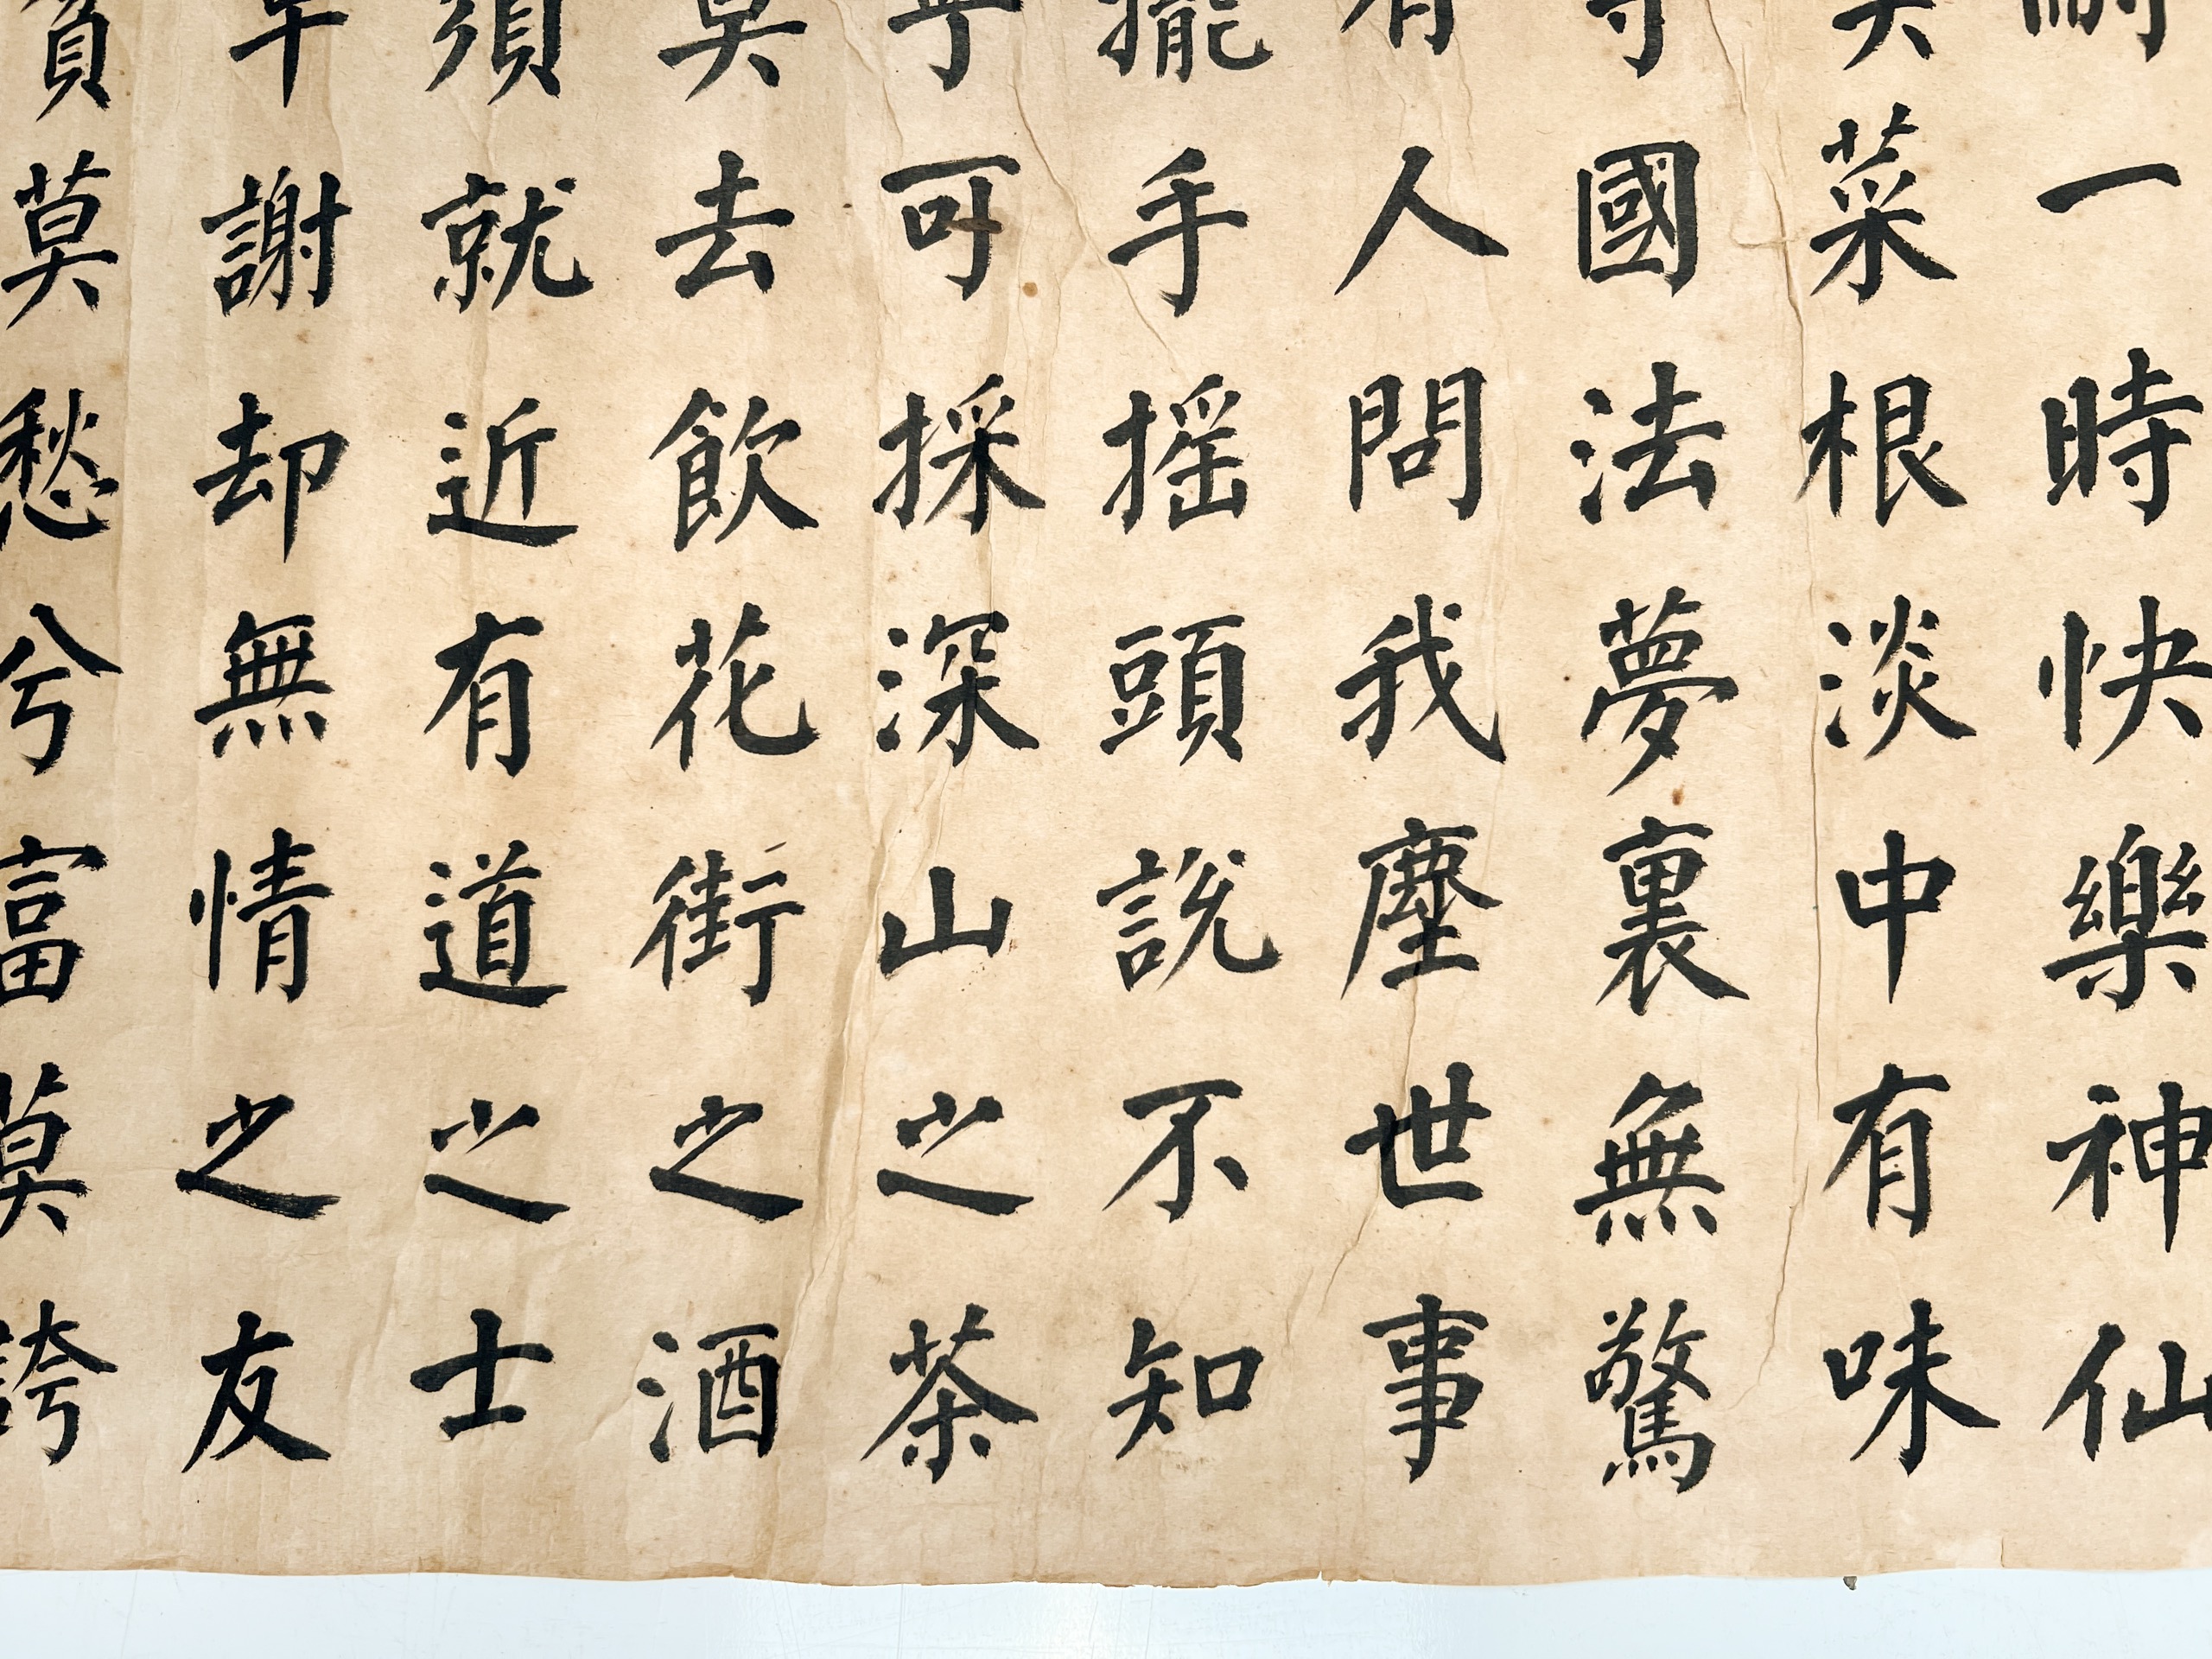 一時快樂神仙
菜根淡中有味
國法夢裏無驚
有人問我塵世事
擺手摇頭說不知
可採深山之茶
莫去飲花街之酒
須就近有道之士
早謝却無情之友
貧莫愁兮富莫誇